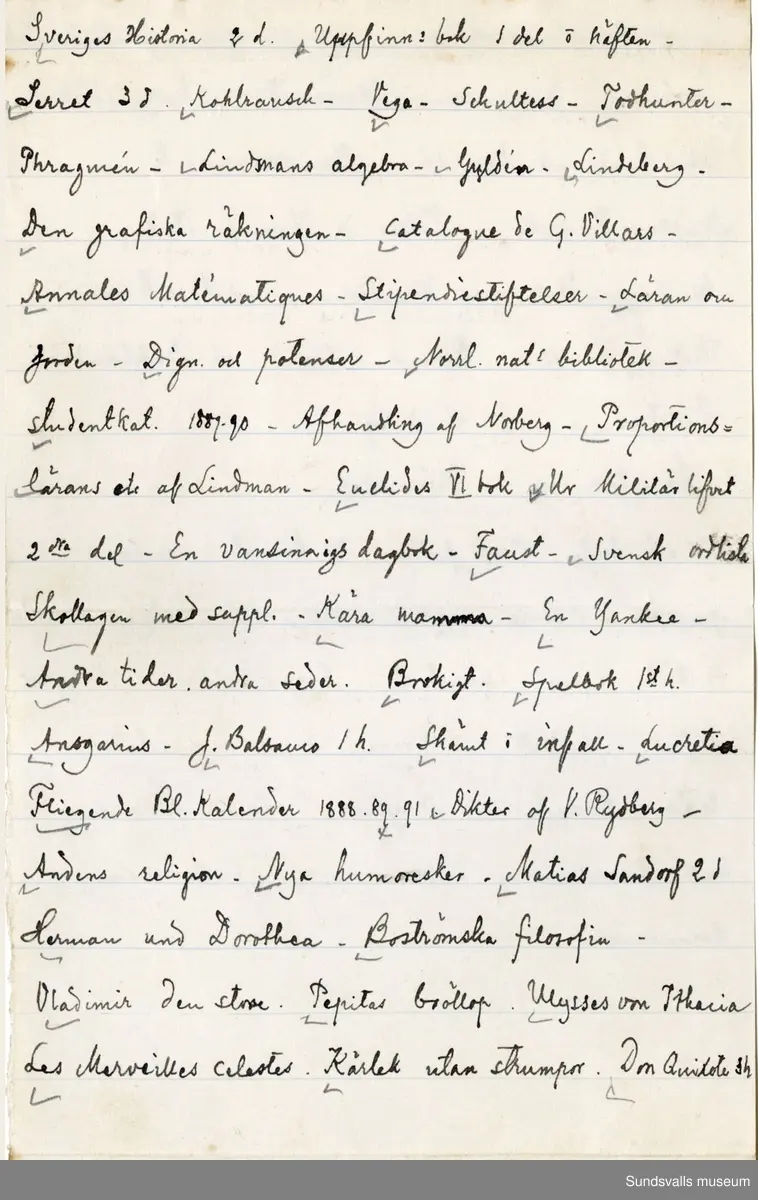 Sveriges Historia 2 d. Uppfinn: bok 1 del ö häften -
Serret 3 d. Kohlrausch - Vega - Schultess - Todhunter -
Phragmén - Lindmans algebra - Gyldén - Lindeberg -
Den grafiska räkningen - Catalogue de G. Villars -
Annales Matématiques - Stipendiestiftelser - Läran om
Jorden - Dign. och potenser - Norrl. nat:s bibliotek -
Studentkat. 1887-90 - Afhandling af Norberg - Proportions=
lärans etc af Lindman - Euclides VI bok Ur Militärlifvet
2dra del - En vansinnigs dagbok - Faust - Svensk ordlista
Skollagen med suppl. - Kära mamma - En Yankee -
Andra tider. andra seder. Brokigt. Spelbok 1st h.
Ansgarius - J. Balsamo 1 h. Skämt i infall - Lucretia
Fliegende Bl. Kalender 1888.89.91 Dikter af V. Rydberg -
Andens religion - Nya humoresker. Matias Sandorf 2 d
Herman und Dorothea - Boströmska filosofin -
Vladimir den store. Pepitas bröllop. Ulysses von Ithacia
Les Merveilles celestes. Kärlek utan strumpor. Don Quixote 3 h
Sundsvalls museum